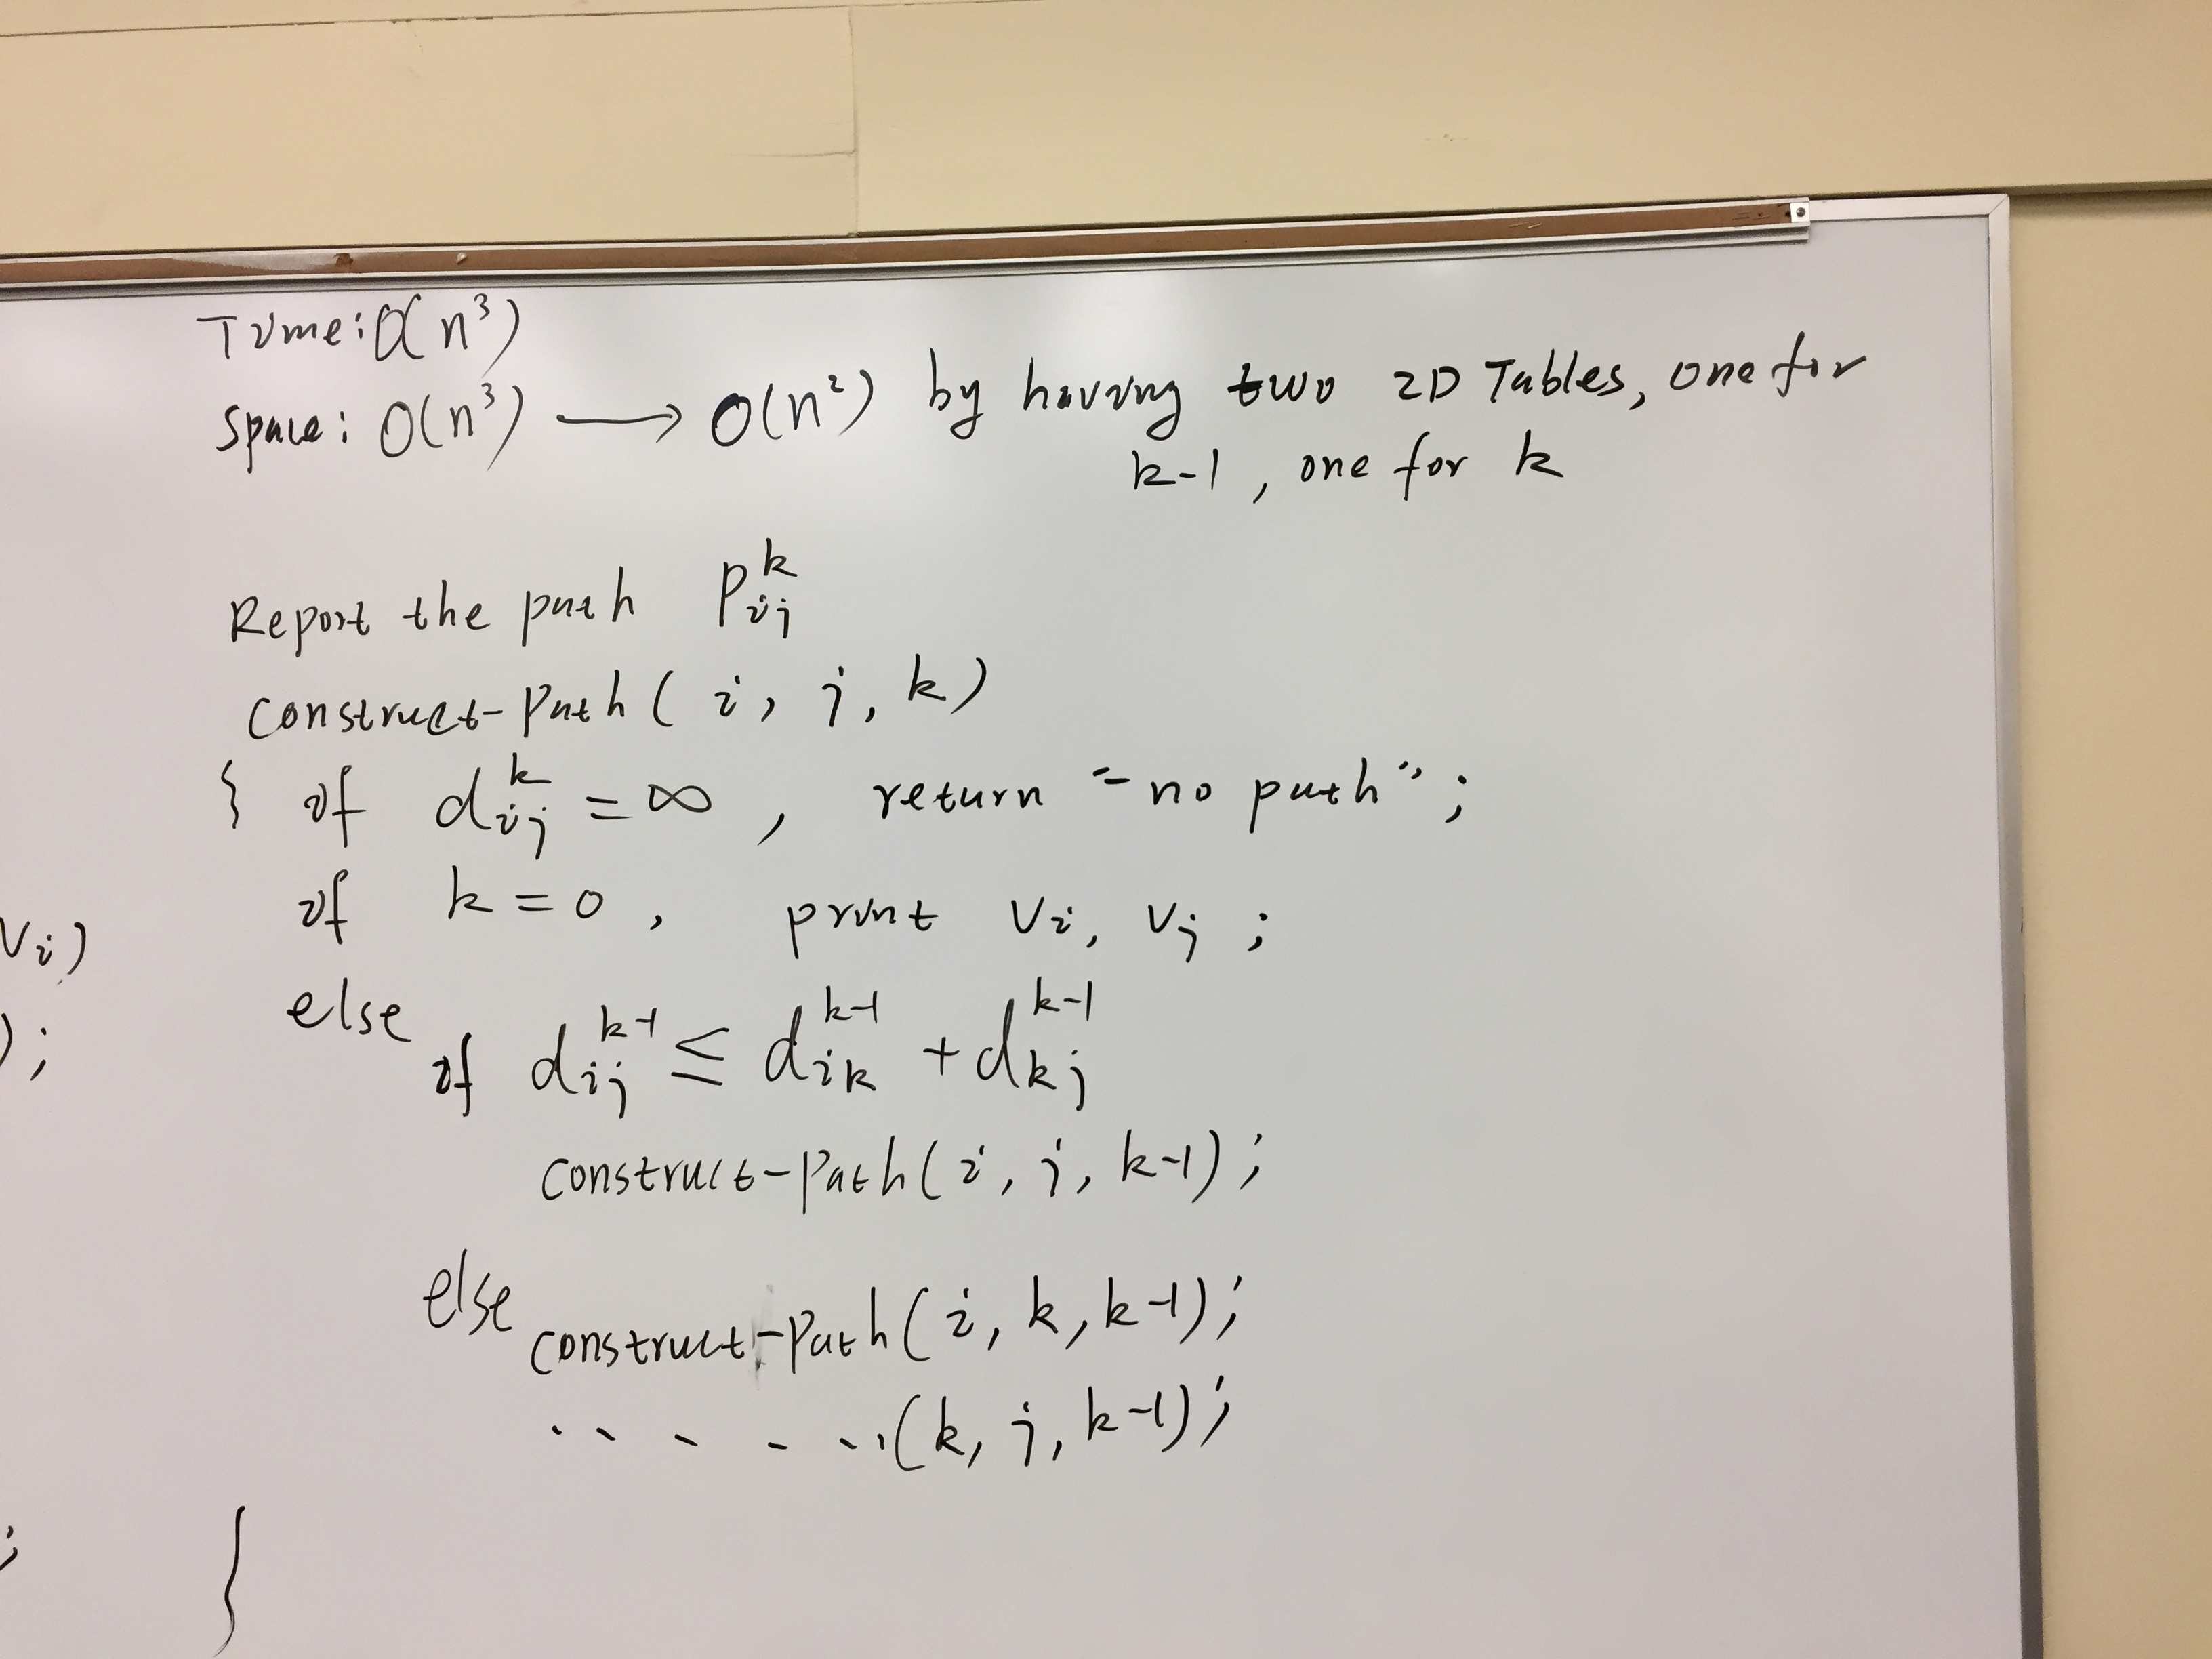 Time: O(n³)
Space: O(n³) ⟶ O(n²) by having two 2D Tables, one for
k-1, one for k
Report the path P_ij^k
Construct-Path( i, j, k)
{ if d_ij^k = ∞, return "no path";
if k = 0, print Vi, Vj ;
Vi)
else
);
if d_ij^(k-1) ≤ d_ik^(k-1) + d_kj^(k-1)
Construct-Path( i, j, k-1);
else
Construct-Path( i, k, k-1);
. . - - ...(k, j, k-1);
;
}